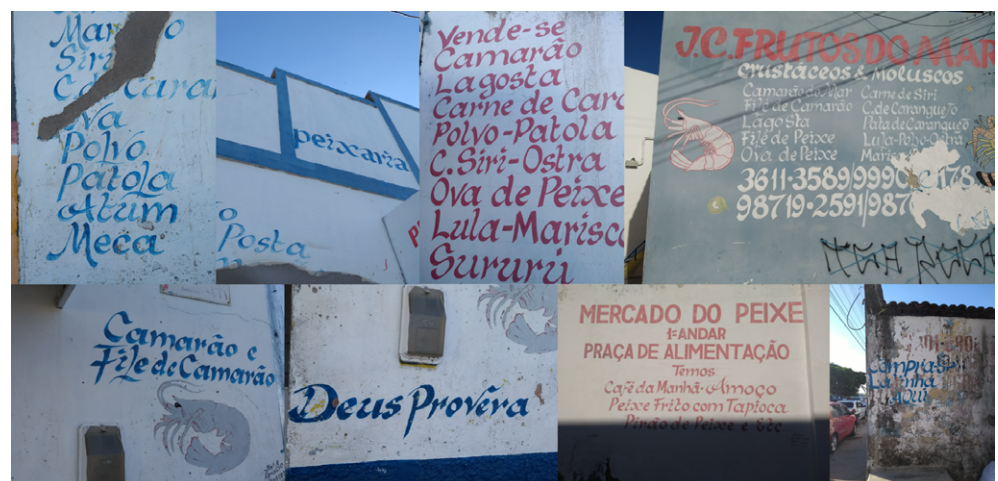 Siri
Ova
Polvo
Patola
Atum
Meca
peixaria
Posta
Vende-se
Camarão
Lagosta
Carne de Cara
Polvo-Patola
C. Siri-Ostra
Ova de Peixe
Lula-Marisco
Sururu
J.C. FRUTOS DO MAR
Crustáceos & Moluscos
Camarão do Mar
Filé de Camarão
Lagosta
Filé de Peixe
Ova de Peixe
Carne de Siri
C. de Caranguejo
Pata de Caranguejo
Lula-Polvo-Ostra
3611-3589/9990
98719-2591/987
Camarão e
Filé de Camarão
Deus Provéra
MERCADO DO PEIXE
1º ANDAR
PRAÇA DE ALIMENTAÇÃO
Temos
Café da Manhã - Amoço
Peixe Frito com Tapioca
Pirão de Peixe e Etc
Compra-Se
Latinha
AQUI